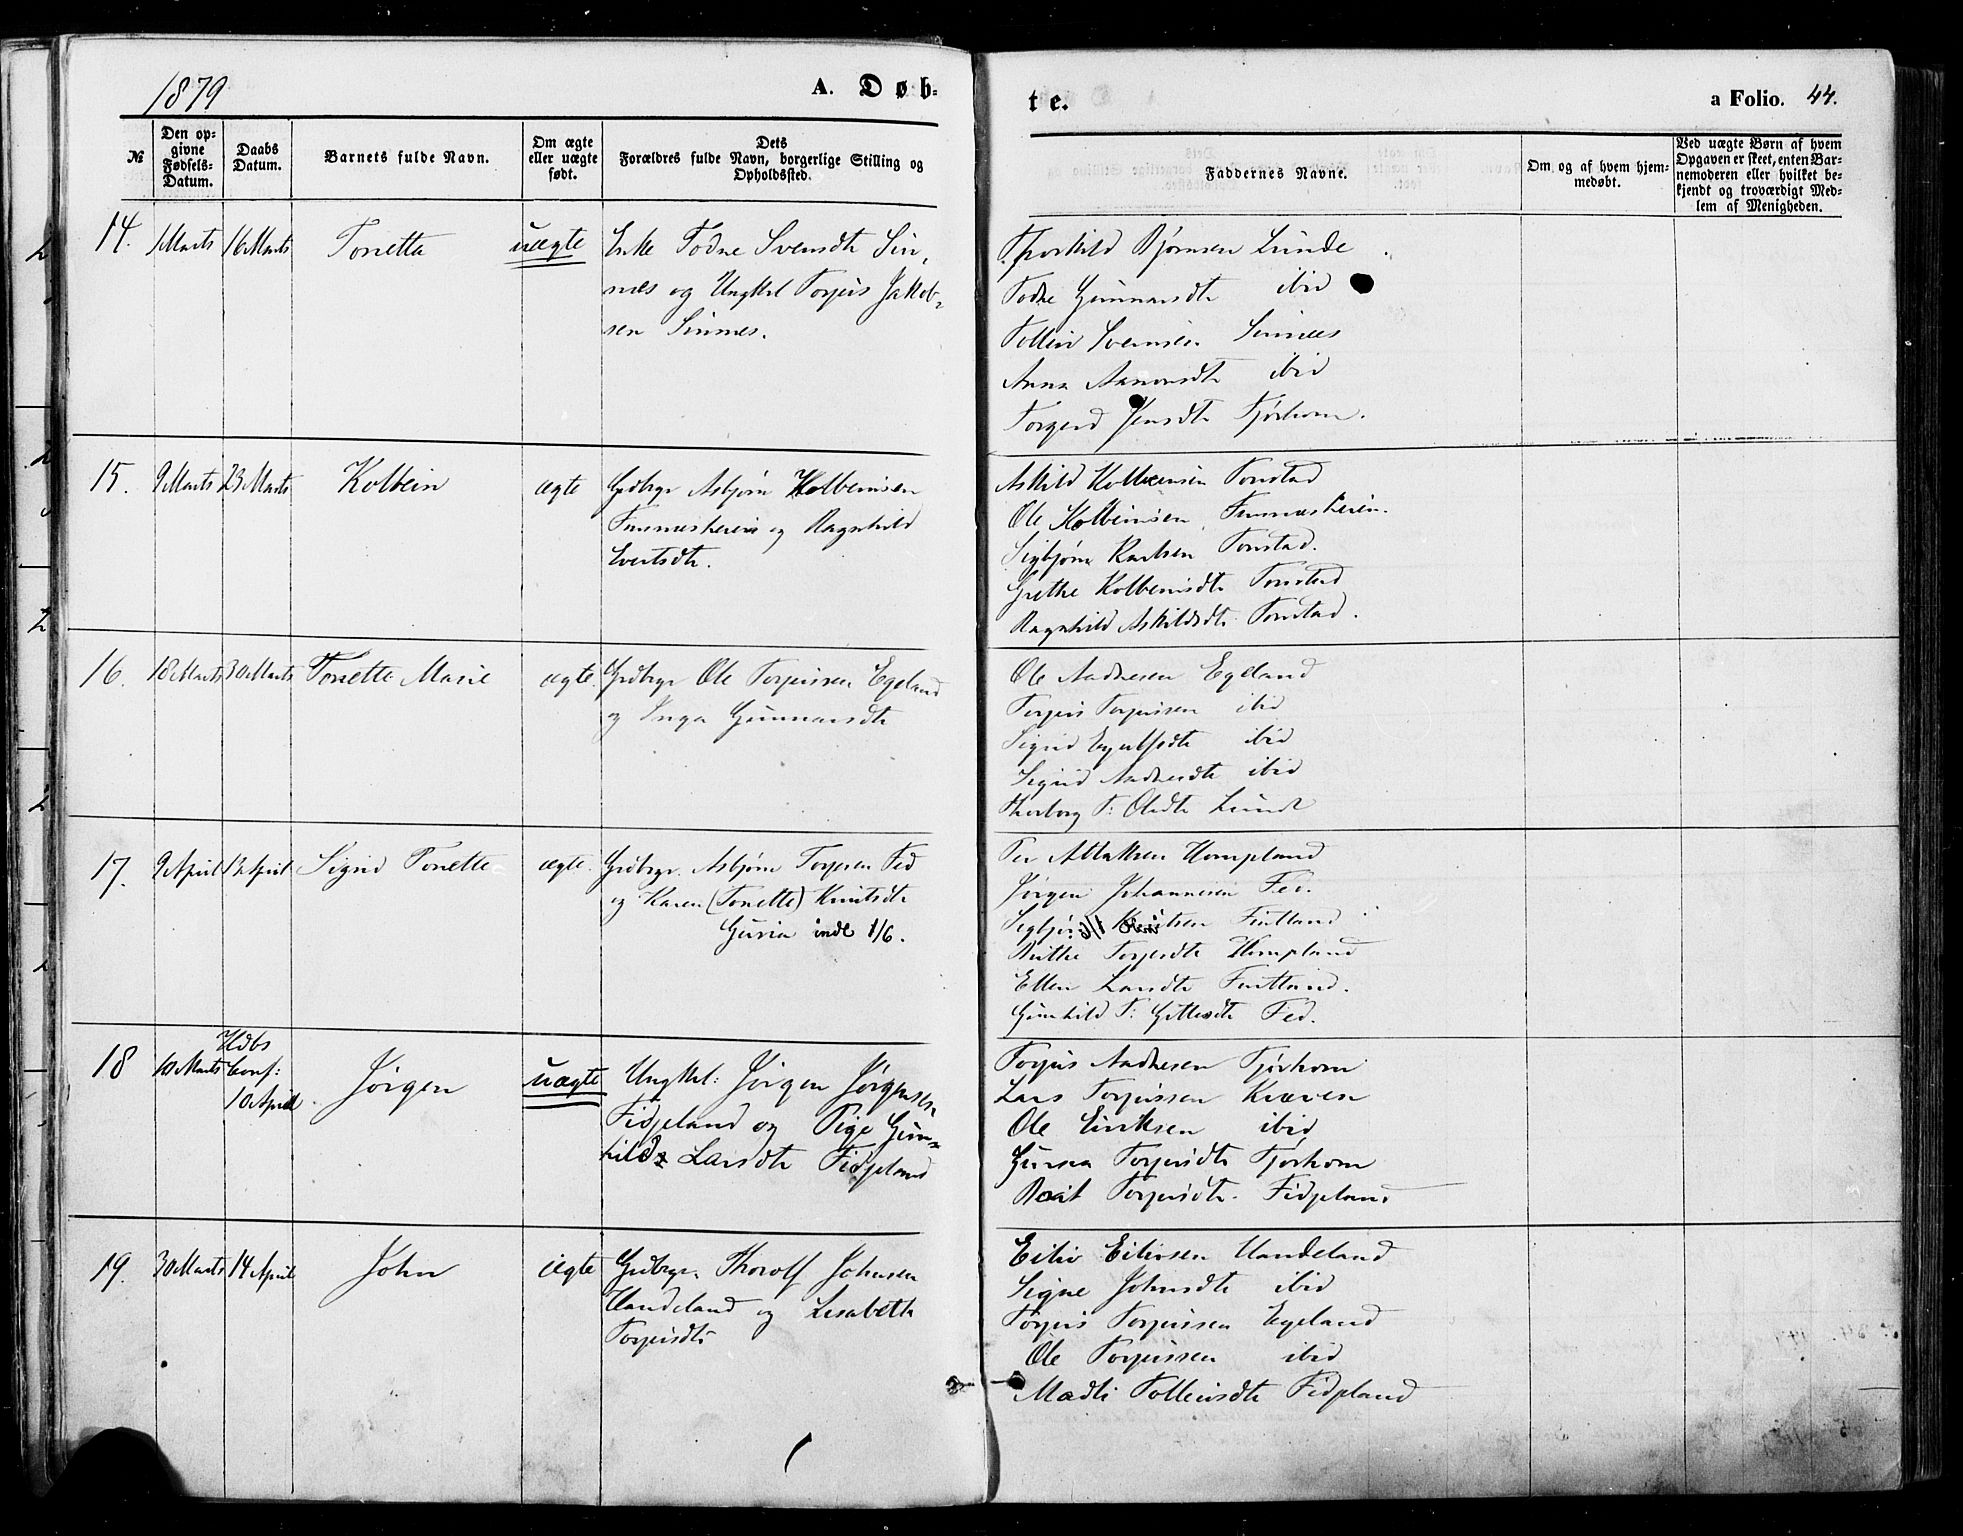 1879
A. Døb-
te.
a Folio. 44.
№
Den op-
givne
Fødsels-
Datum.
Daabs
Datum.
Barnets fulde Navn.
Om ægte
eller uægte
født.
Dets
Forældres fulde Navn, borgerlige Stilling og
Opholdssted.
Faddernes Navne.
Om og af hvem hjem-
medøbt.
Ved uægte Børn af hvem
Opgaven er skeet, enten Bar-
nemoderen eller hvilket be-
kjendt og troværdigt Med-
lem af Menigheden.
14. 1 Marts 16 Marts Tonetta uægte
Enke Todne Svensdtr Sin-
nes og Ungkel Torjus Jakob-
sen Sinnes.
Thorkild Bjørnsen Lunde
Todne Gunnarsdtr ibid
Tollev Svensen Sinnes
Anna Aanonsdtr ibid
Torgerd Jensdtr Tjørhom.
15. 9 Marts 23 Marts Kolbein ægte
Grdbrgr Asbjørn Kolbeinsen
og Ragnhild
Evertsdtr.
Askild Kolbeinsen Tonstad
Ole Kolbeinsen
Sigbjørn Karlsen Tonstad.
Grethe Kolbeinsdtr Tonstad
Ragnhild Askildsdtr Tonstad.
16. 18 Marts 30 Marts Tonette Marie ægte.
Grdbrgr Ole Torjussen Egeland
og Inga Gunnarsdtr
Ole Andresen Egeland
Torjus Torjussen ibid
Sigrid ibid
Sigrid Andresdtr ibid
Thorborg T: Olsdtr Lunde
17. 9 April 13 April Sigrid Tonette ægte.
Grdbrgr. Asbjørn Torjesen Fed
og Karen (Tonette) Knutsdtr
Guria indl 1/6.
Per Atlaksen Hompland
Jørgen Johannesen Fed.
Sigbjørn Knutsen Fintland
Torjesdtr Hompland
Ellen Larsdtr Fintland.
Gunhild T: Fed.
18 10 Marts Hdbs
Conf:
10 April Jørgen uægte
Ungkel: Jørgen Jørgensen
Fidjeland og Pige Gun-
hild Larsdtr Fidjeland
Torjus Andresen Tjørhom
Lars Torjussen Kvæven
Ole Eriksen ibid
Guria Torjusdtr Tjørhom
Torjusdtr. Fidjeland
19. 30 Marts 14 April John ægte
Grdbrgr. Thorolf Johnsen
Haudeland og Lisabeth
Torjusdtr
Eiliv Eilivsen Haudeland
Signe Johnsdtr ibid
Torjus Torjussen Egeland
Ole Torjussen ibid
Madli Tollevsdtr Fidjeland